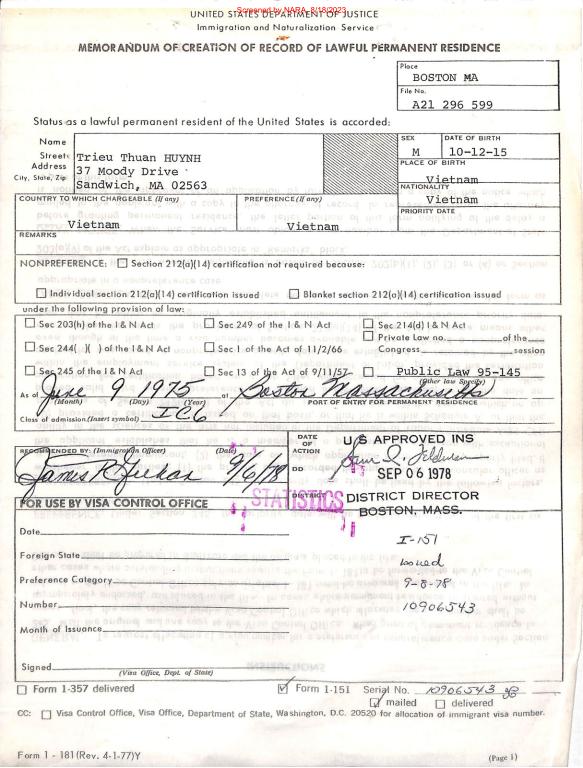 Screened by NARA, 8/18/2023
UNITED STATES DEPARTMENT OF JUSTICE
Immigration and Naturalization Service
MEMORANDUM OF CREATION OF RECORD OF LAWFUL PERMANENT RESIDENCE
Place
BOSTON MA
File No.
A21 296 599
Status as a lawful permanent resident of the United States is accorded:
Name
Street Address
City, State, Zip
Trieu Thuan HUYNH
37 Moody Drive
Sandwich, MA 02563
SEX
M
DATE OF BIRTH
10-12-15
PLACE OF BIRTH
Vietnam
NATIONALITY
Vietnam
COUNTRY TO WHICH CHARGEABLE (If any)
Vietnam
PREFERENCE (If any)
Vietnam
PRIORITY DATE
REMARKS
NONPREFERENCE: Section 212(a)(14) certification not required because:
Individual section 212(a)(14) certification issued Blanket section 212(a)(14) certification issued
under the following provision of law:
Sec 203(h) of the I & N Act Sec 249 of the I & N Act Sec 214(d) I & N Act
Private Law no. of the
Sec 244( )( ) of the I & N Act Sec 1 of the Act of 11/2/66 Congress session
Sec 245 of the I & N Act Sec 13 of the Act of 9/11/57 Public Law 95-145
(Other law Specify)
As of June 9 1975 at Boston Massachusetts
(Month) (Day) (Year) PORT OF ENTRY FOR PERMANENT RESIDENCE
Class of admission (Insert symbol) IC6
RECOMMENDED BY: (Immigration Officer) (Date)
9/6/78
DATE OF ACTION
DD
DISTRICT
U/S APPROVED INS
SEP 06 1978
DISTRICT DIRECTOR
BOSTON, MASS.
STATISTICS
FOR USE BY VISA CONTROL OFFICE
Date
Foreign State
Preference Category
Number
Month of Issuance
Signed
(Visa Office, Dept. of State)
I-151
issued
9-8-78
10906543
Form 1-357 delivered Form 1-151 Serial No. 10906543
mailed delivered
CC: Visa Control Office, Visa Office, Department of State, Washington, D.C. 20520 for allocation of immigrant visa number.
Form 1 - 181 (Rev. 4-1-77)Y
(Page 1)